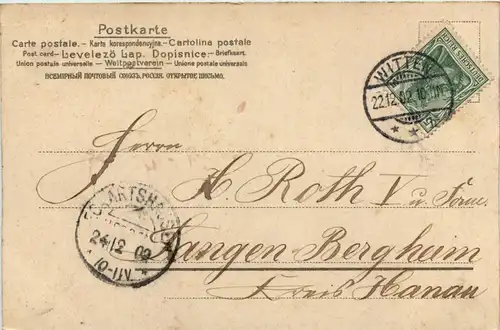 Postkarte
Carte postale. - Karta korespondencyjna. - Cartolina postale
Post card - Levelező Lap. Dopisnice - Briefkaart.
Union postale universelle - Weltpostverein - Unione postale universale
ВСЕМІРНЫЙ ПОЧТОВЫЙ СОЮЗЪ. РОССІЯ. ОТКРЫТОЕ ПИСЬМО.
WITTEN
22.12.02
Herrn
H. Roth V u. Fam.
Langen-Bergheim
Kreis Hanau
24 12 02
10-11V